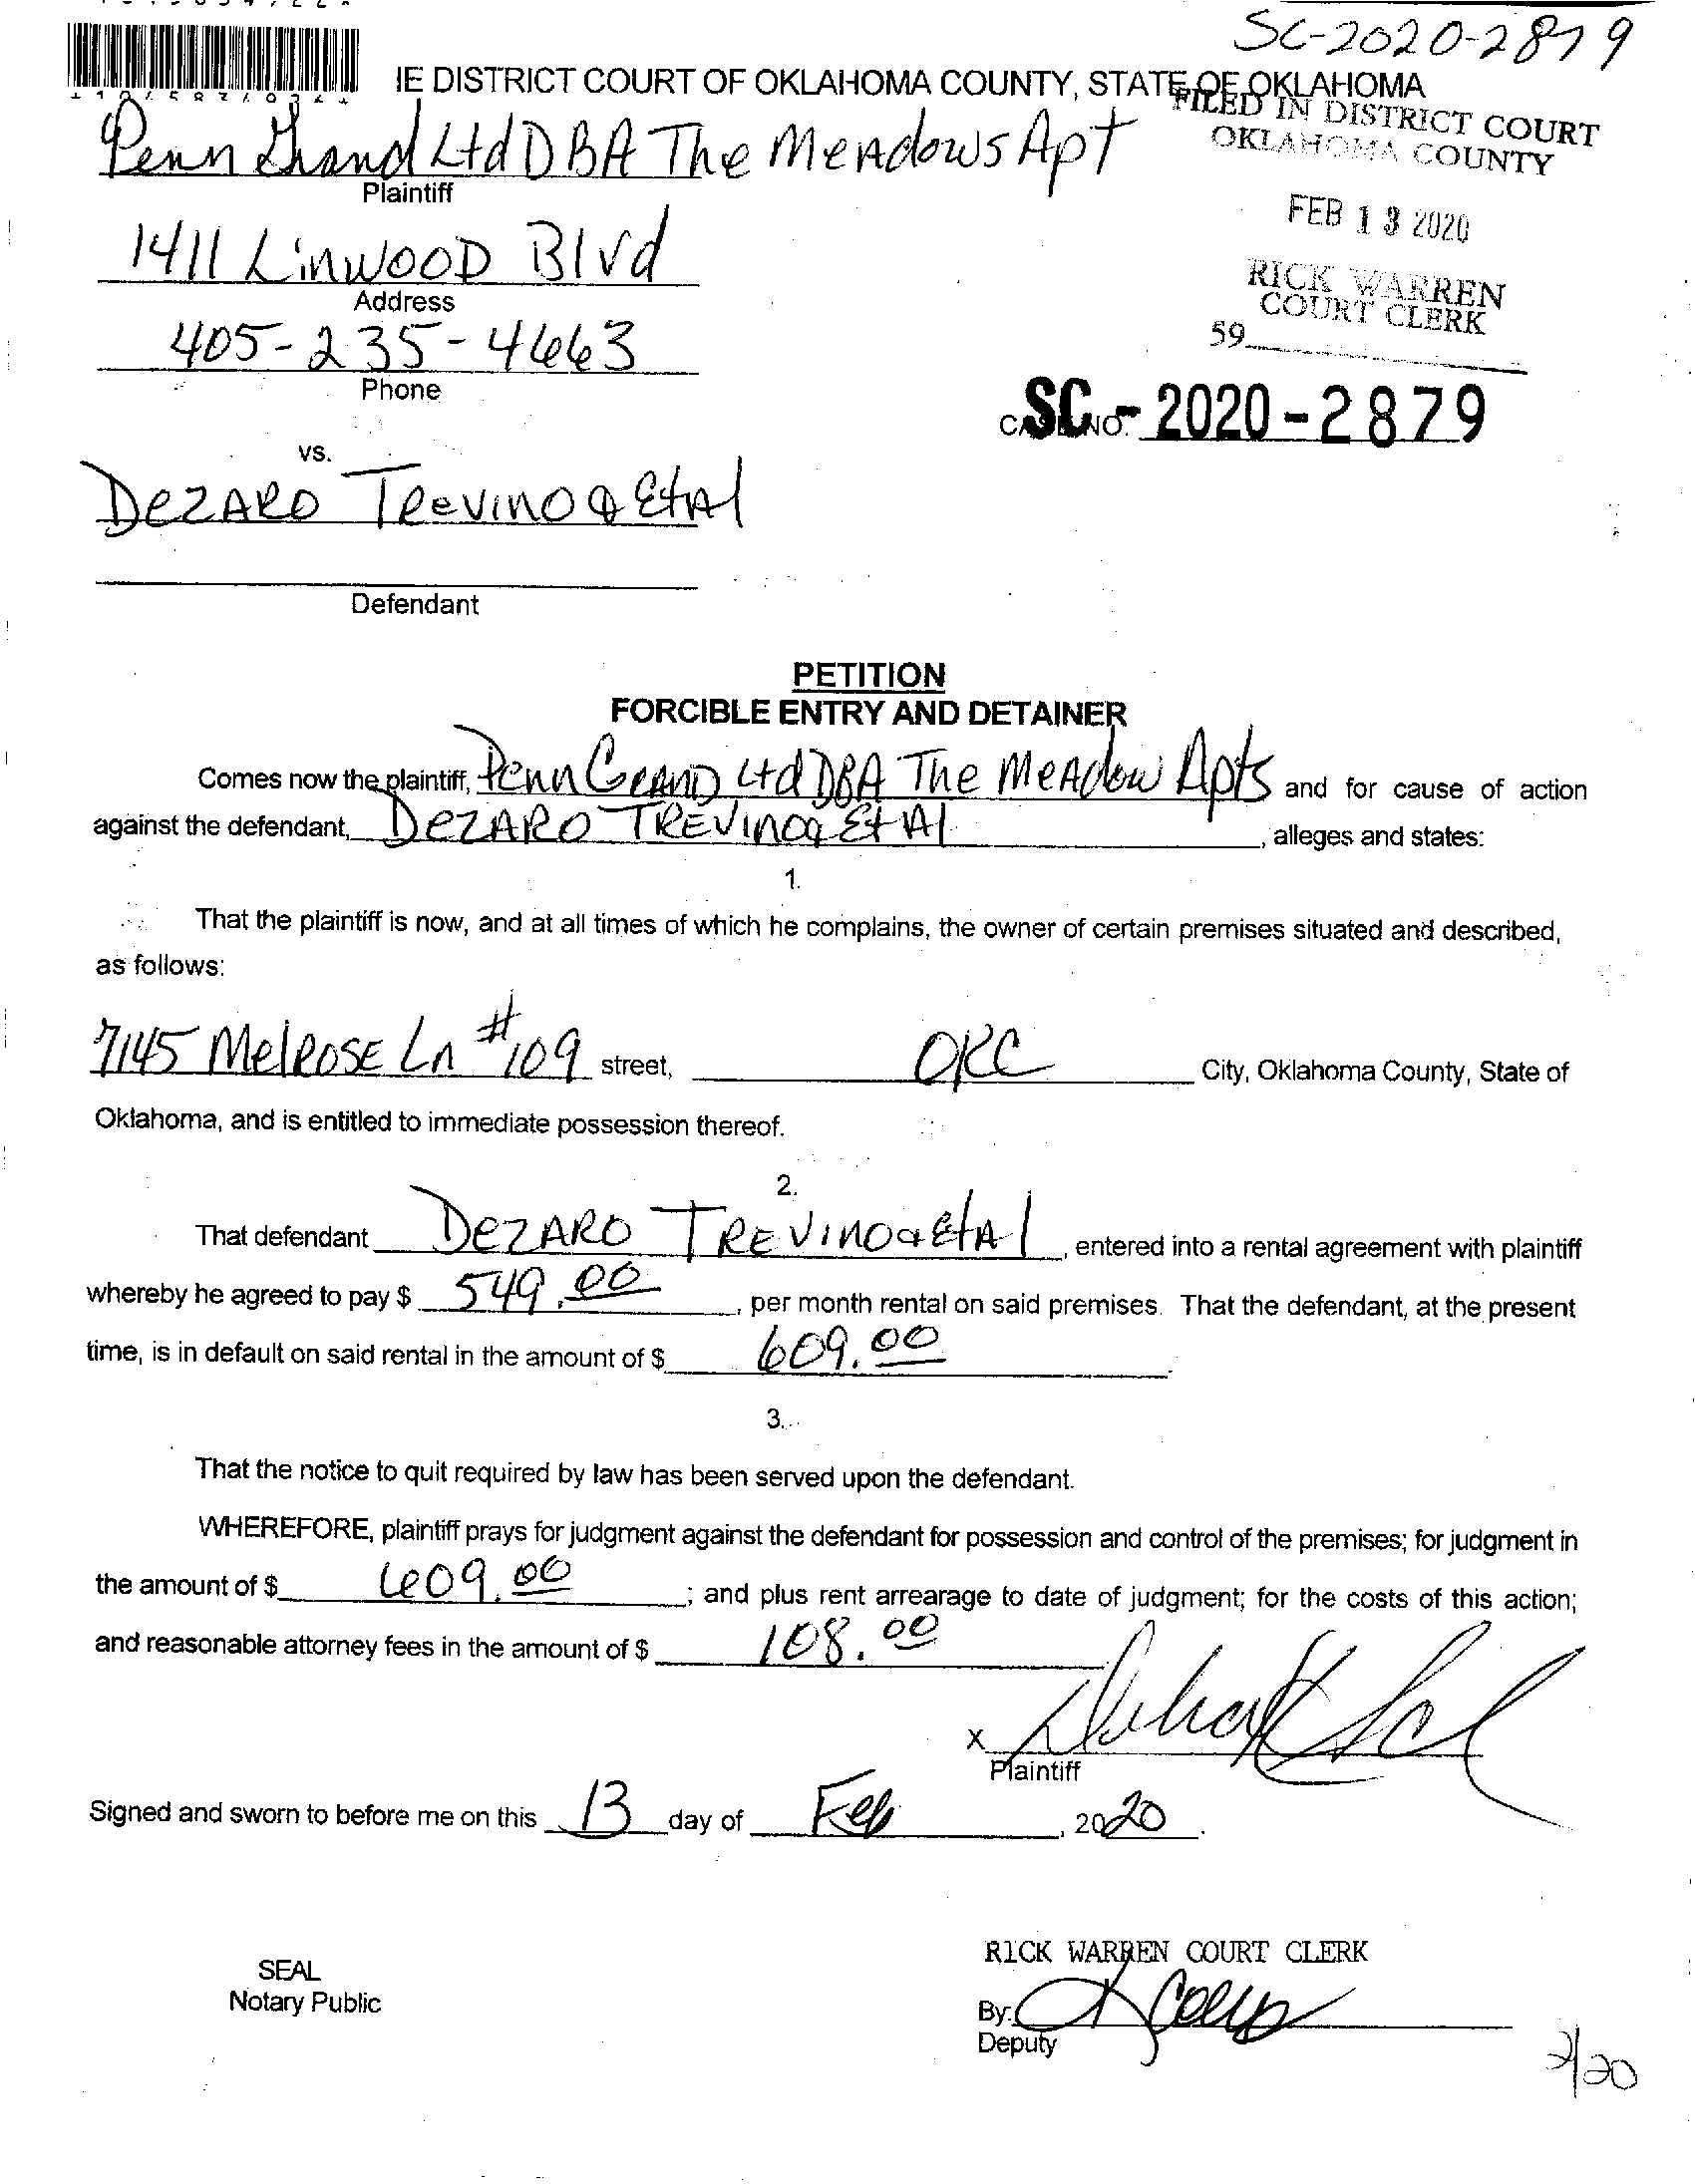 SC-2020-2879
IE DISTRICT COURT OF OKLAHOMA COUNTY, STATE OF OKLAHOMA
FILED IN DISTRICT COURT
OKLAHOMA COUNTY
Penn Grand Ltd DBA The Meadows Apt
Plaintiff
FEB 13 2020
1411 Linwood Blvd
Address
RICK WARREN
COURT CLERK
59
405-235-4663
Phone
CASE NO. SC-2020-2879
vs.
Dezaro Trevino & Etal
Defendant
PETITION
FORCIBLE ENTRY AND DETAINER
Comes now the plaintiff, Penn Grand Ltd DBA The Meadow Apts and for cause of action
against the defendant, Dezaro Trevino & Etal, alleges and states:
1.
That the plaintiff is now, and at all times of which he complains, the owner of certain premises situated and described,
as follows:
7145 Melrose Ln #109 street, OKC City, Oklahoma County, State of
Oklahoma, and is entitled to immediate possession thereof.
2.
That defendant Dezaro Trevino & Etal, entered into a rental agreement with plaintiff
whereby he agreed to pay $ 549.00, per month rental on said premises. That the defendant, at the present
time, is in default on said rental in the amount of $ 609.00.
3.
That the notice to quit required by law has been served upon the defendant.
WHEREFORE, plaintiff prays for judgment against the defendant for possession and control of the premises; for judgment in
the amount of $ 609.00; and plus rent arrearage to date of judgment; for the costs of this action;
and reasonable attorney fees in the amount of $ 108.00
X
Plaintiff
Signed and sworn to before me on this 13 day of Feb, 2020.
RICK WARREN COURT CLERK
SEAL
Notary Public
By:
Deputy
2/20